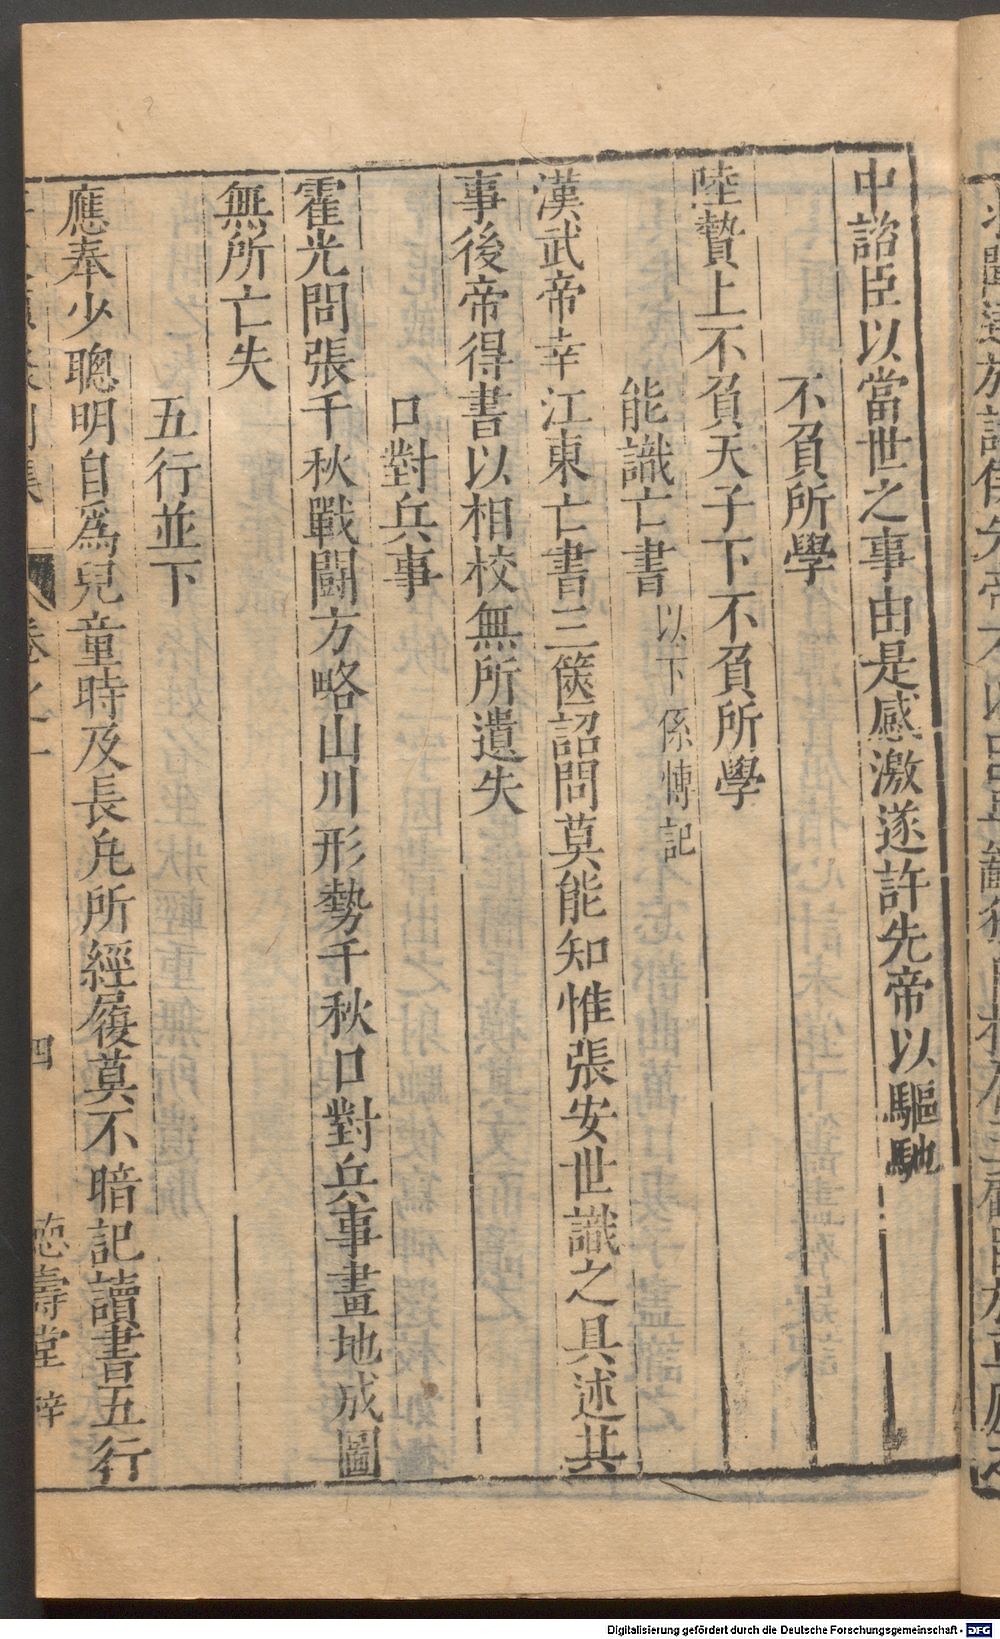 中諮臣以當世之事由是感激遂許先帝以驅馳
不負所學
陸贄上不負天子下不負所學
能識亡書以下係慱記
漢武帝幸江東亡書三篋詔問莫能知惟張安世識之具述其
事後帝得書以相校無所遺失
口對兵事
霍光問張千秋戰鬪方略山川形勢千秋口對兵事畫地成圖
無所亡失
五行並下
應奉少聰明自爲兒童時及長凢所經履莫不暗記讀書五行
卷之一
四
德壽堂梓
Digitalisierung gefördert durch die Deutsche Forschungsgemeinschaft - DFG